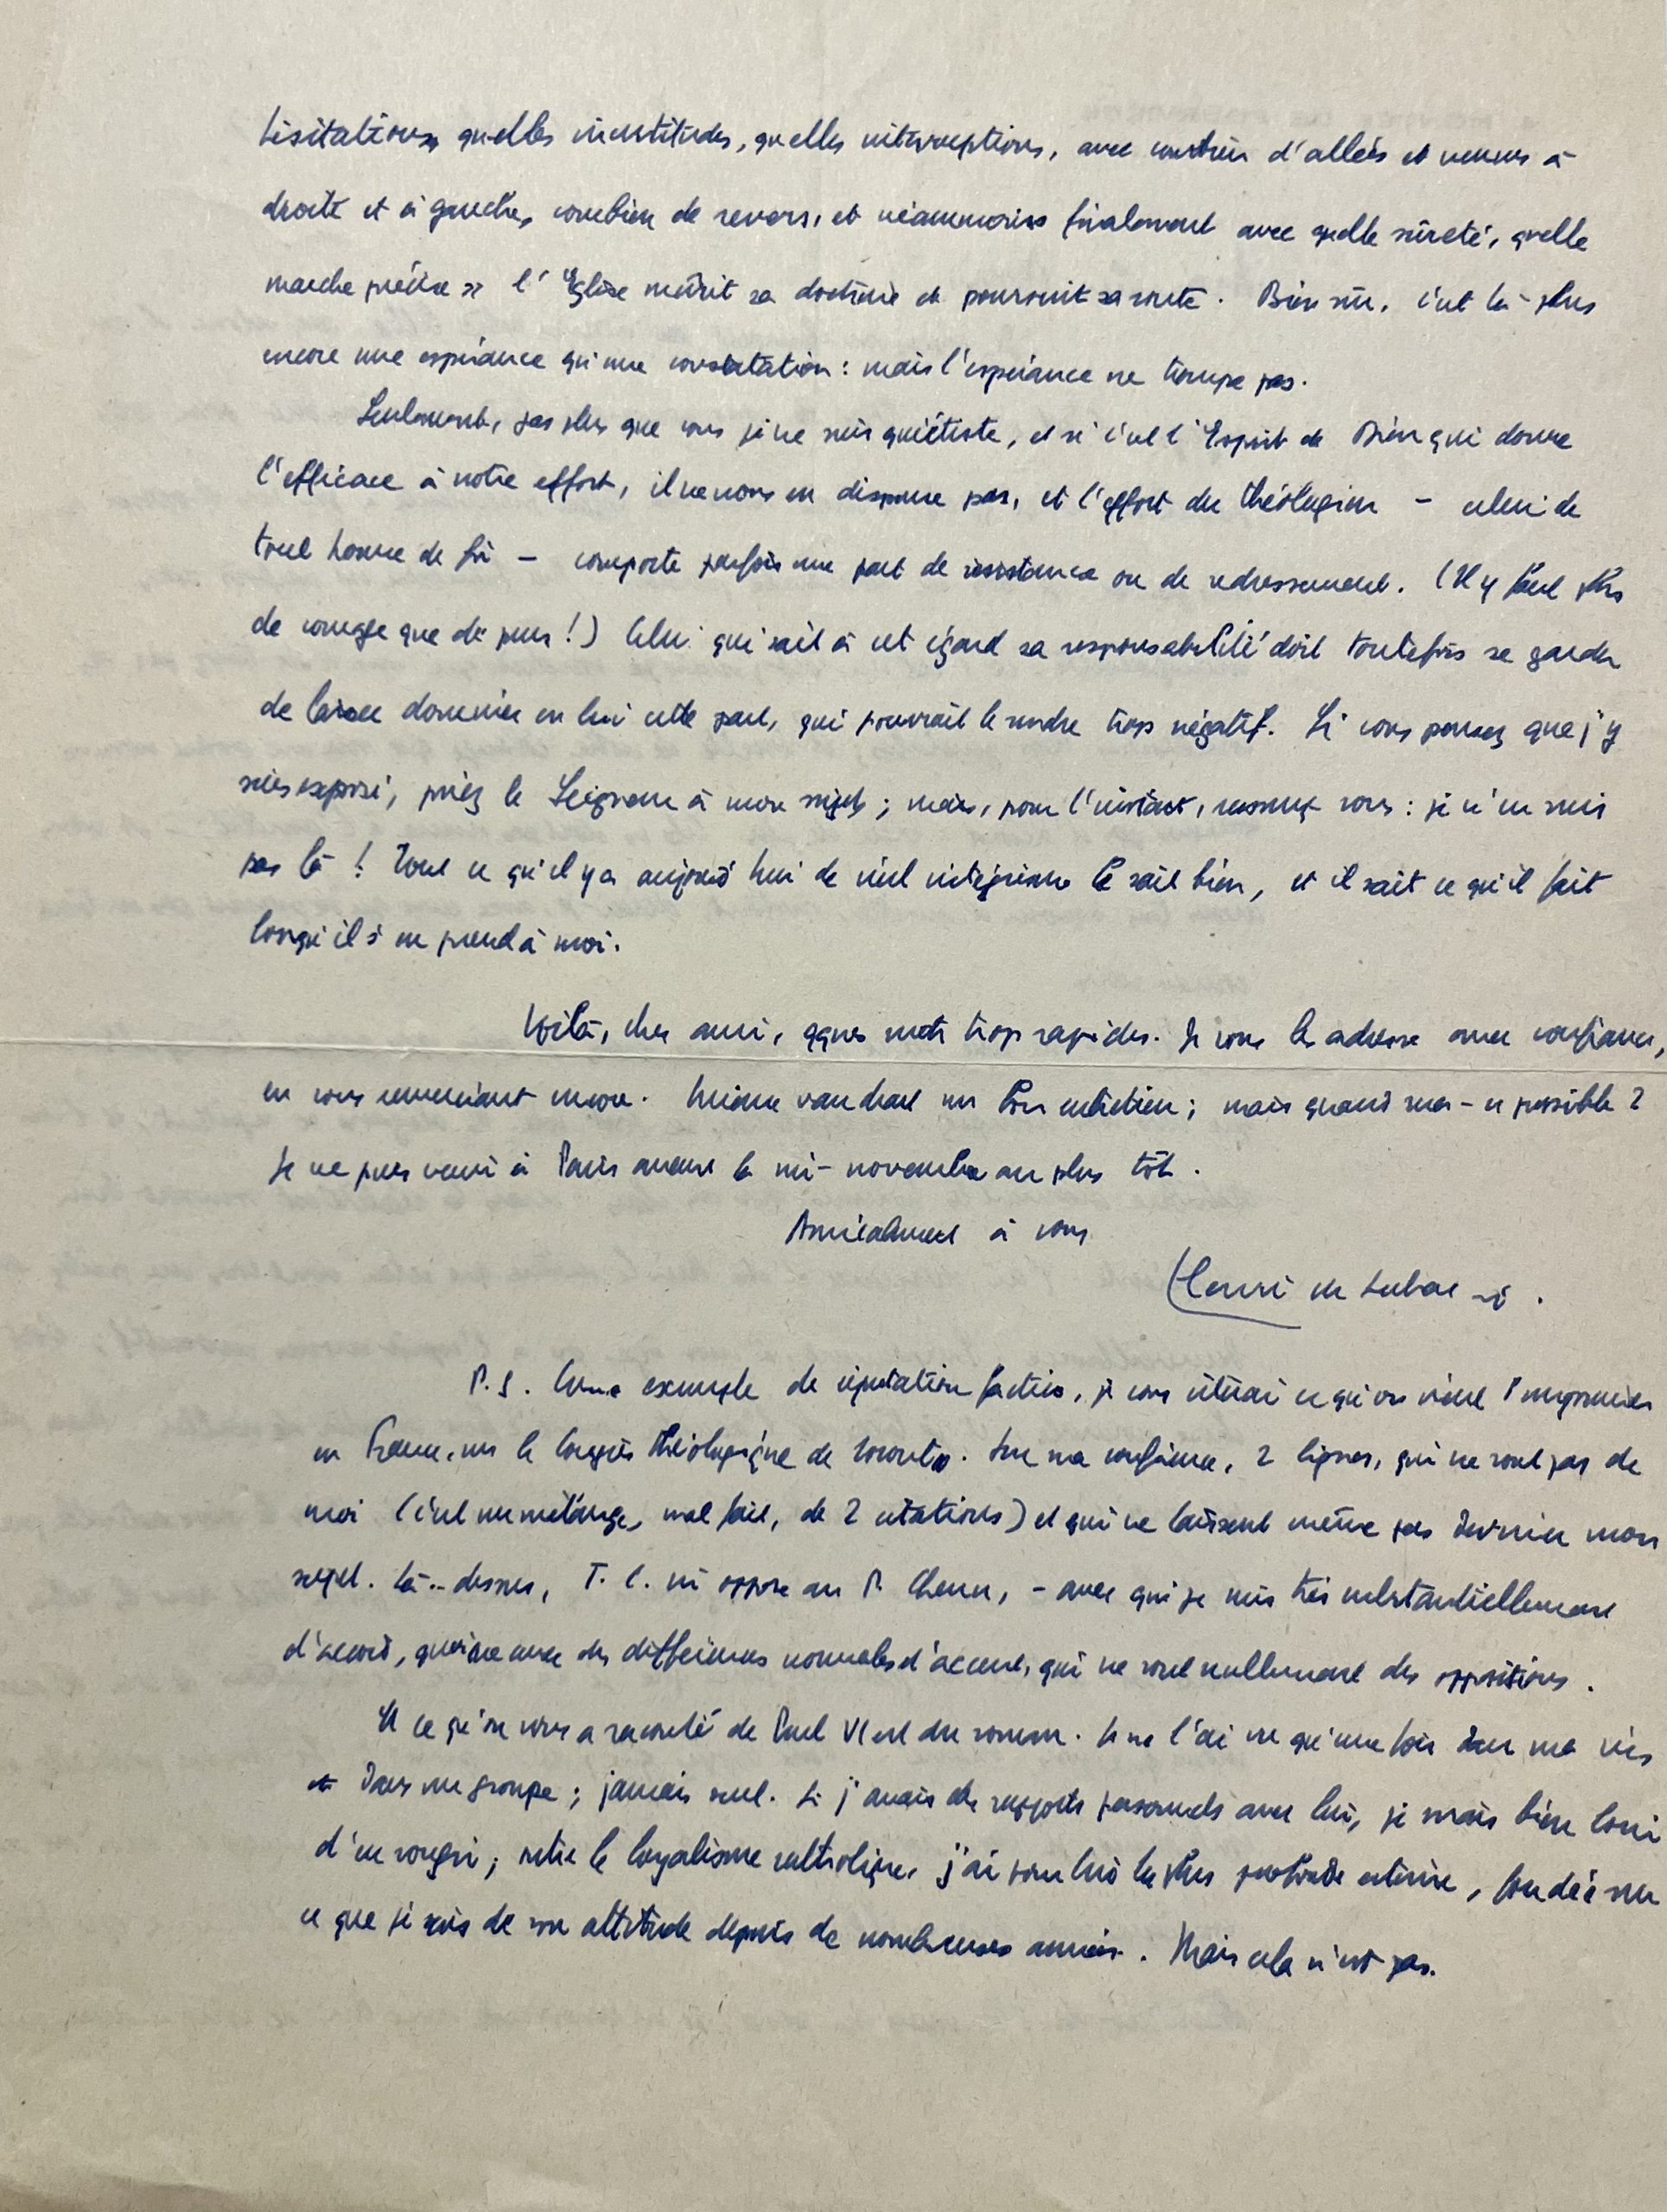 hésitations, quelles incertitudes, quelles interruptions, avec combien d'allées et venues à
droite et à gauche, combien de revers, et néanmoins finalement avec quelle sûreté, quelle
marche précise » l'Eglise mûrit sa doctrine et poursuit sa route. Bien sûr, c'est là plus
encore une espérance qu'une constatation : mais l'espérance ne trompe pas.
Seulement, pas plus que vous je ne suis quiétiste, et si c'est l'Esprit de Dieu qui donne
l'efficace à notre effort, il ne nous en dispense pas, et l'effort du théologien – celui de
tout homme de foi – comporte parfois une part de résistance ou de redressement. (Il y faut plus
de courage que de peur !) Celui qui sait à cet égard sa responsabilité doit toutefois se garder
de laisser dominer en lui cette part, qui pourrait le rendre trop négatif. Si vous pensez que j'y
suis exposé, priez le Seigneur à mon sujet ; mais, pour l'instant, rassurez vous : je n'en suis
pas là ! Tout ce qu'il y a aujourd'hui de vieil intégrisme le sait bien, et il sait ce qu'il fait
lorsqu'il s'en prend à moi.
Voilà, cher ami, qques mots trop rapides. Je vous les adresse avec confiance,
en vous remerciant encore. Mieux vaudrait un bon entretien ; mais quand sera-ce possible ?
Je ne puis venir à Paris avant la mi-novembre au plus tôt.
Amicalement à vous
Henri de Lubac sj.
P.S. Comme exemple de réputation factice, je vous citerai ce qu'on vient d'imprimer
en France, sur le Congrès théologique de Toronto. Sur ma conférence, 2 lignes, qui ne sont pas de
moi (c'est un mélange, mal fait, de 2 citations) et qui ne laissent même pas deviner mon
sujet. Là-dessus, T. C. m'oppose au P. Chenu, – avec qui je suis très substantiellement
d'accord, quoique avec des différences normales d'accent, qui ne sont nullement des oppositions.
Et ce qu'on vous a raconté de Paul VI est du roman. Je ne l'ai vu qu'une fois dans ma vie
et dans un groupe ; jamais seul. Si j'avais des rapports personnels avec lui, je serais bien loin
d'en rougir ; outre le loyalisme catholique, j'ai pour lui la plus profonde estime, fondée sur
ce que je sais de son attitude depuis de nombreuses années. Mais cela n'est pas.